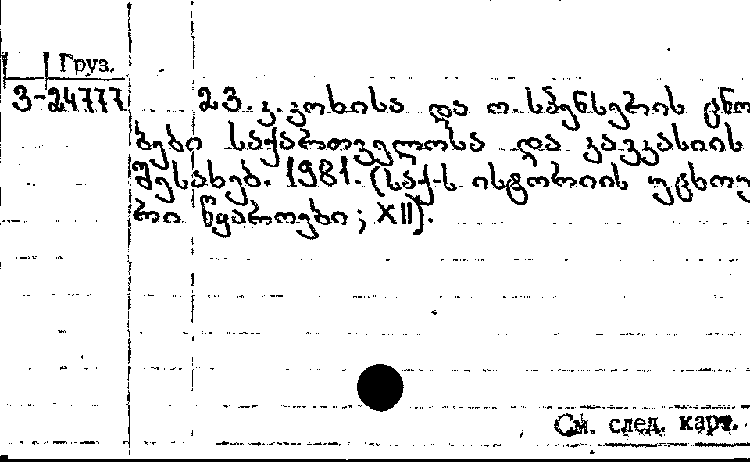 Груз.
3-24777
23. კ. კოხისა და ო. სპენსერის ცნო
ბები საქართველოსა და კავკასიის
შესახებ. 1981. (საქ-ს ისტორიის უცხოუ
რი წყაროები; XII).
См. след. карт.